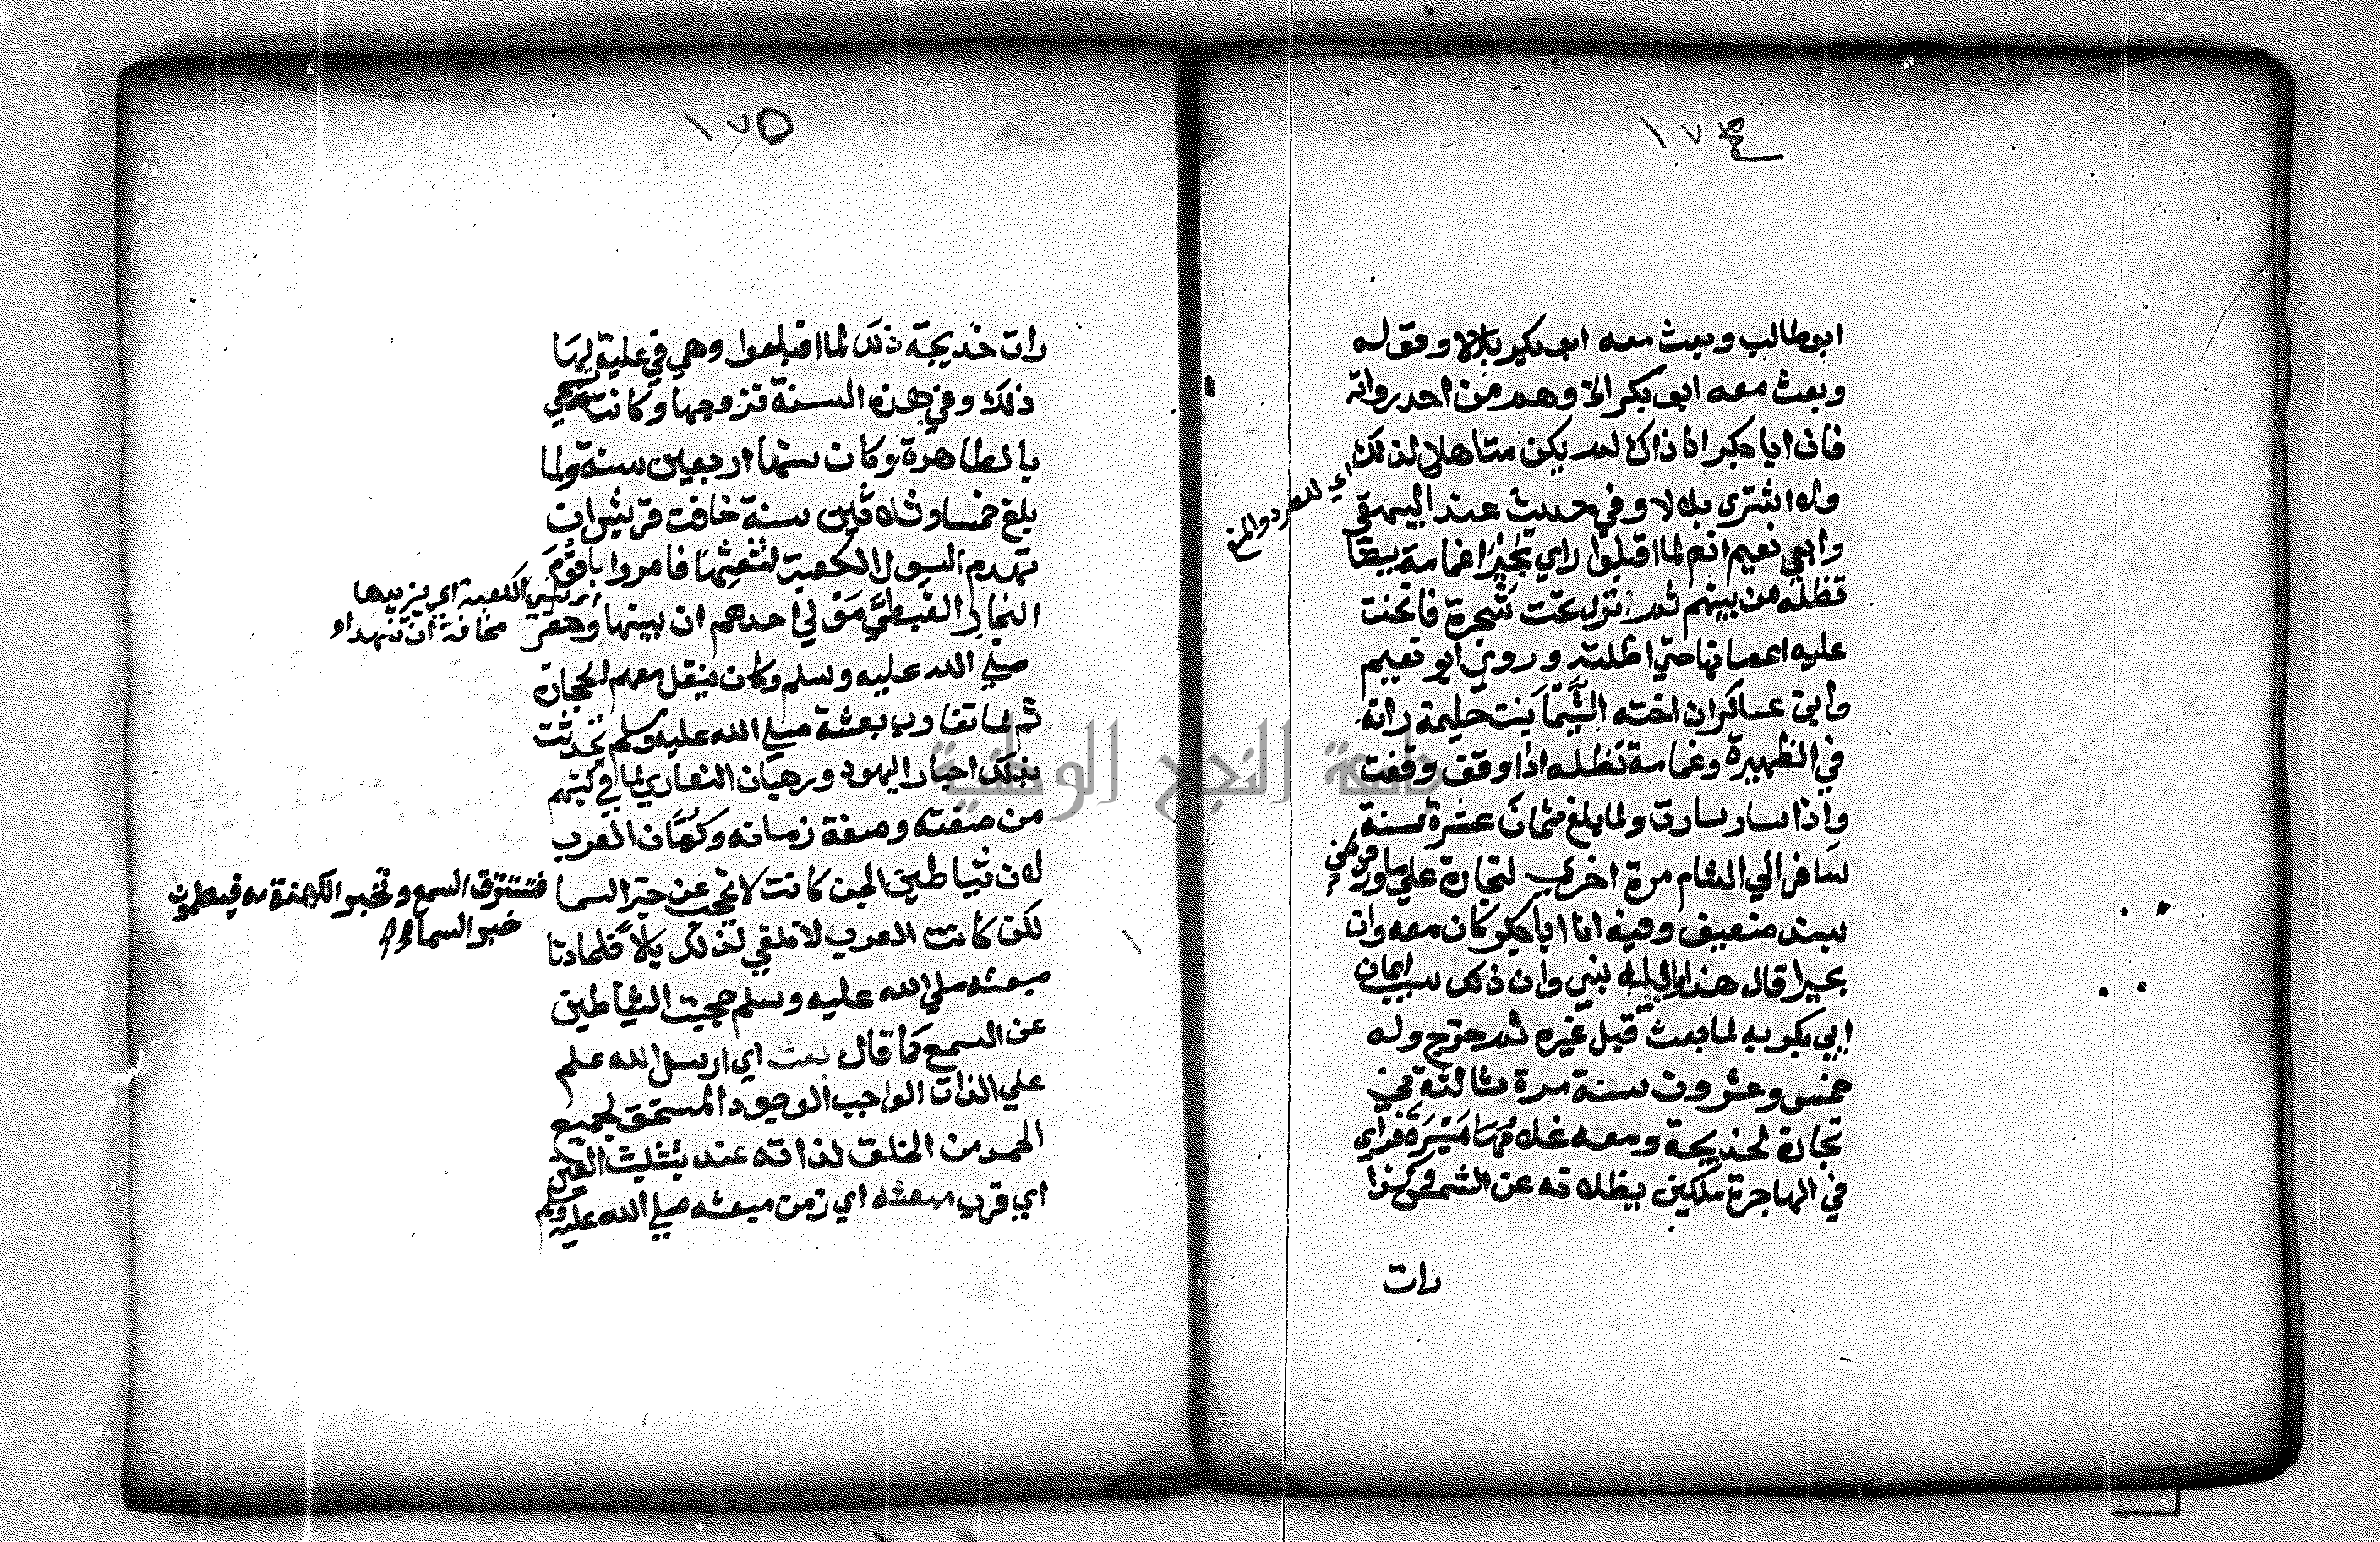 ١٧٤
ابوطالب وبعث معه ابو بكر بلالا وقوله
وبعث معه ابو بكر الخ وهم من احد رواته
فان ابا بكر اذ ذاك لم يكن متاهلا لذلك
ولا اشترى بلالا وفي حديث عند البيهقي
وابي نعيم انهم لما اقبلوا راي بحيرا غمامة بيضا
تظله من بينهم ثم نزل تحت شجرة فانحنت
عليه اغصانها حتي اظلته وروي ابو نعيم
وابن عساكر ان اخته الشيما بنت حليمة راته
في الظهيرة وغمامة تظله اذا وقف وقفت
واذا سار سارت ولما بلغ ثمان عشرة سنة
سافر الي الشام مرة اخري لتجارة علي ما ورد
بسند ضعيف وفيه انا ابا بكر كان معه وان
بحيرا قال هذا والله نبي وان ذلك سبب ايمان
ابي بكر به لما بعث قبل غيره ثم خرج وله
خمس وعشرون سنة مرة ثالثة في
تجارة لخديجة ومعه غلامها ميسرة فراي
في الهاجرة ملكين يظلانه عن الشمس وكذا
رات
١٧٥
رات خديجة ذلك لما اقبلوا وهي في علية لها
ذلك وفي هذه السنة تزوجها وكانت تسمي
بالطاهرة وكان سنها اربعين سنة ولما
بلغ خمسا وثلاثين سنة خافت قريش ان
تهدم السيول الكعبة لتشعثها فامروا باقوم
النجار القبطي مولي احدهم ان يبنيها وحضر
صلي الله عليه وسلم وكان ينقل معهم الحجارة
ثم لما تقارب بعثة صلي الله عليه وسلم تحدثت
بذلك احبار اليهود ورهبان النصاري لما في كتبهم
من صفته وصفة زمانه وكهان العرب
لان شياطين الجن كانت لا تحجب عن خبر السما
لكن كانت العرب لا تلقي لذلك بالا فلما دنا
مبعثه صلي الله عليه وسلم حجبت الشياطين
عن السمع كما قال بعث اي ارسل الله علم
علي الذات الواجب الوجود المستحق لجميع
الحمد من الخلق لذاته عند
اي قرب مبعثه اي زمن مبعثه صلي الله عليه وسلم
الكعبة اي يزينها
مخافة ان تنهد او
فتسترق السمع وتخبر الكهنة به
خبر السما
جامعة النجاح الوطنية